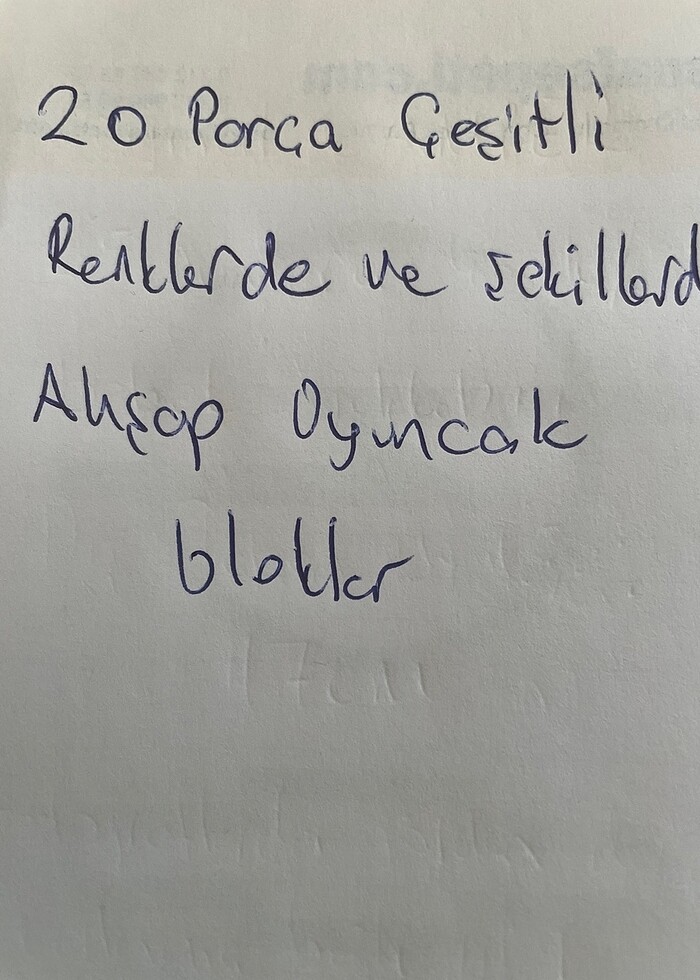 20 Parça Çeşitli
Renklerde ve şekillerd
Ahşap Oyuncak
bloklar